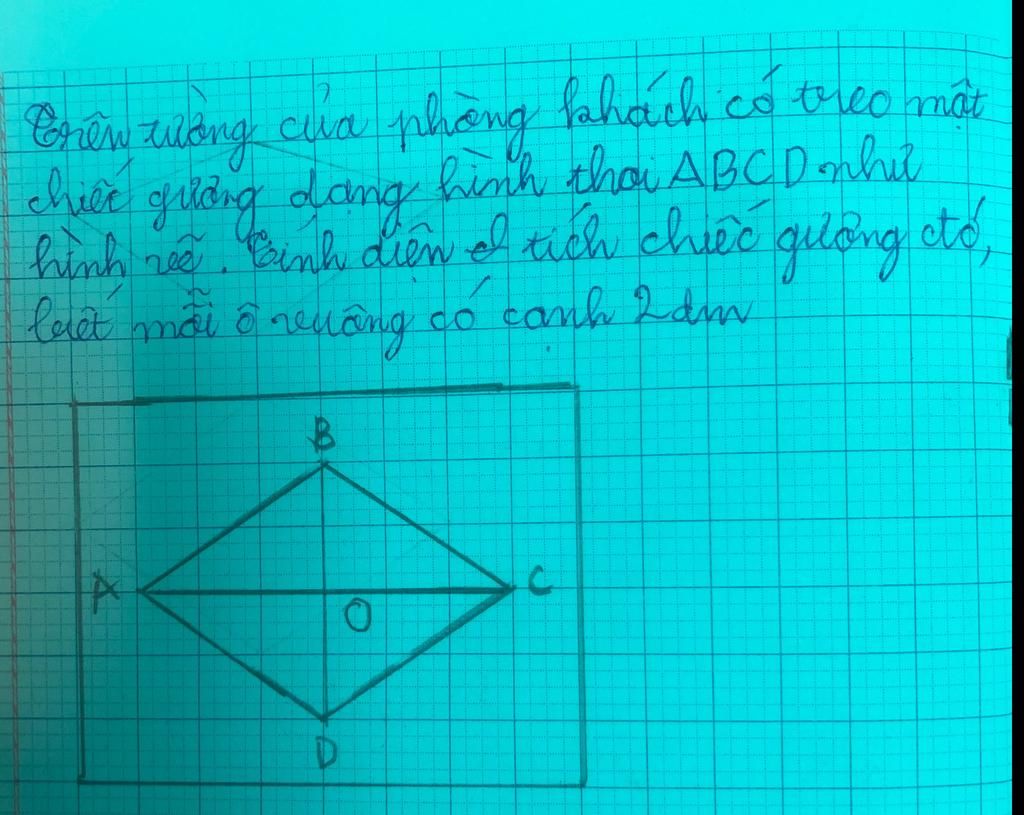 Trên tường của phòng khách có treo một
chiếc gương dạng hình thoi ABCD như
hình vẽ. Tính diện tích chiếc gương đó,
biết mỗi ô vuông có cạnh 2dm
B
A
C
O
D